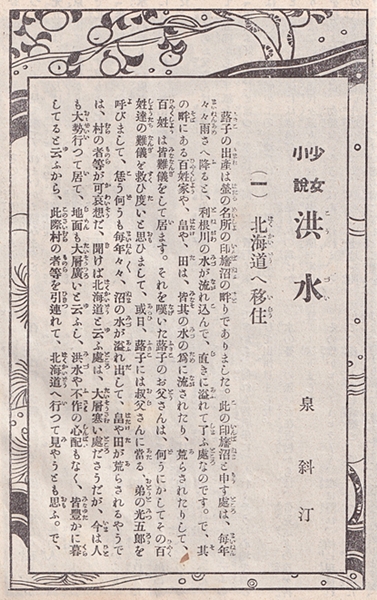 少女小説 洪水
泉斜汀
(一) 北海道へ移住
蕗子の出産は螢の名所の印旛沼の畔りでありました。此の印旛沼と申す處は、毎年
々々雨さへ降ると、利根川の水が流れ込んで、直きに溢れて了ふ處なのです。で、其
の畔にある百姓家や、畠や、田は、皆其の水の爲に流されたり、荒らされたりして、
百姓は皆難儀をして居ます。それを嘆いた蕗子のお父さんは、何うにかして其の百
姓達の難儀を救ひ度いと思ひまして、或日、蕗子には叔父さんに當る、弟の光五郎を
呼びまして、恁う何うも毎年々々、沼の水が溢れ出して、畠や田が荒らされるやうで
は、村の者等が可哀想だ、聞けば北海道と云ふ處は、大層寒い處ださうだが、今は人
も大勢行つて居て、地面も大層廣いと云ふし、洪水や不作の心配もなく、皆豐かに暮
してると云ふから、此際村の者等を引連れて、北海道へ行つて見やうとも思ふ。で、